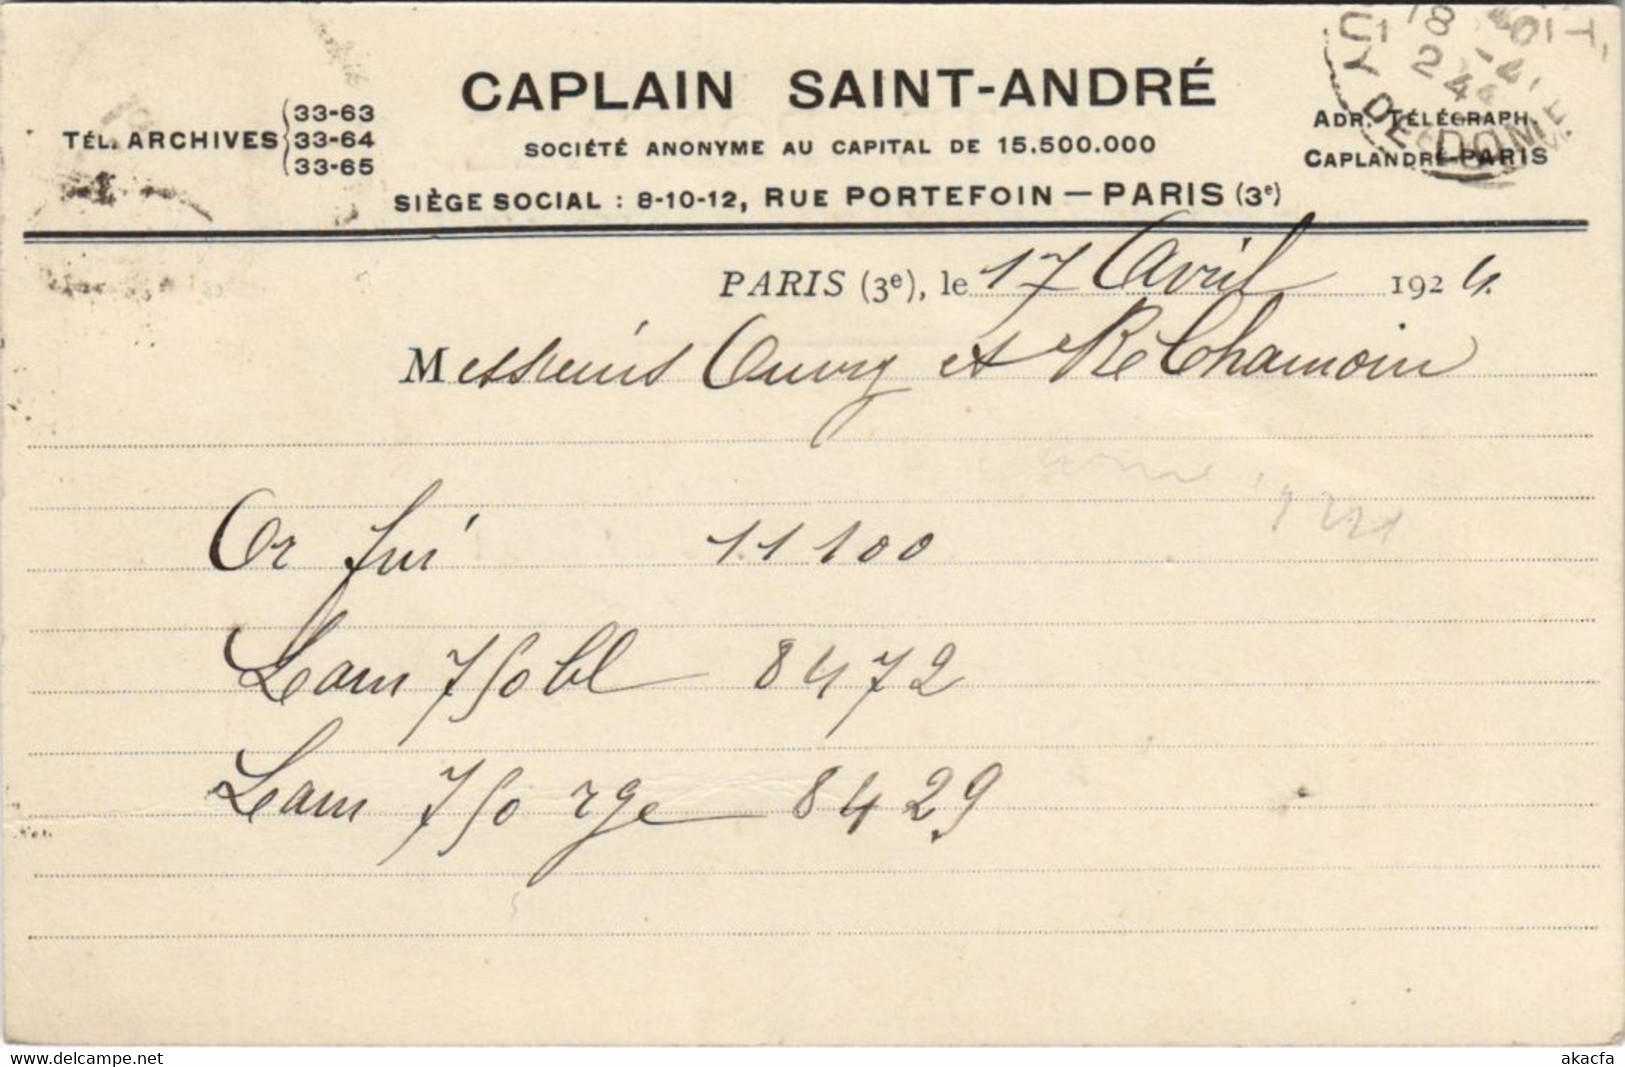 CAPLAIN SAINT-ANDRÉ
TÉL. ARCHIVES 33-63
33-64
33-65
SOCIÉTÉ ANONYME AU CAPITAL DE 15.500.000
ADR. TÉLÉGRAPH.
CAPLANDRÉ-PARIS
SIÈGE SOCIAL : 8-10-12, RUE PORTEFOIN — PARIS (3e)
PUY DE DOME
18
24
PARIS (3e), le 17 Avril 1924.
Messieurs et
Or fin 11100
Lam 750 bl 8472
Lam 750 rge 8429
www.delcampe.net
akacfa